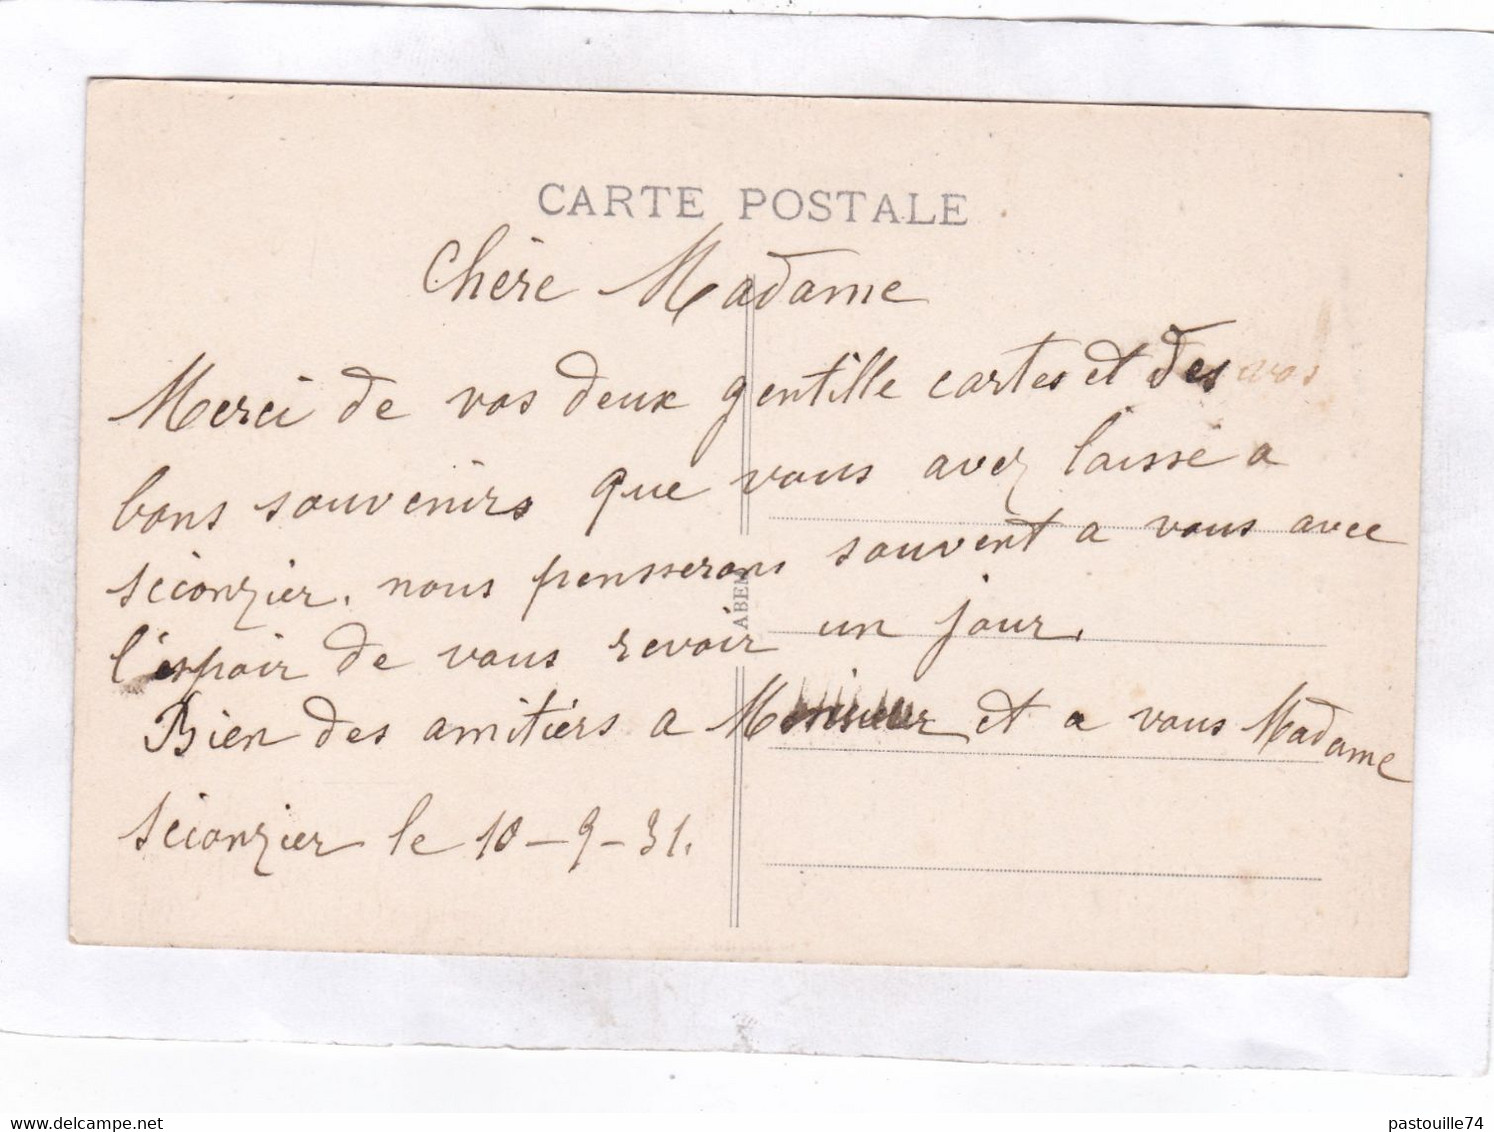 CARTE POSTALE
Chère Madame
Merci de vos deux gentille cartes et des vos
bons souvenirs que vous avez laissé a
Scionzier. nous pensserons souvent a vous avec
l'espoir de vous revoir un jour.
Bien des amitiérs a Monsieur et a vous Madame
Scionzier le 10-9-31.
ABEM
www.delcampe.net
pastouille74